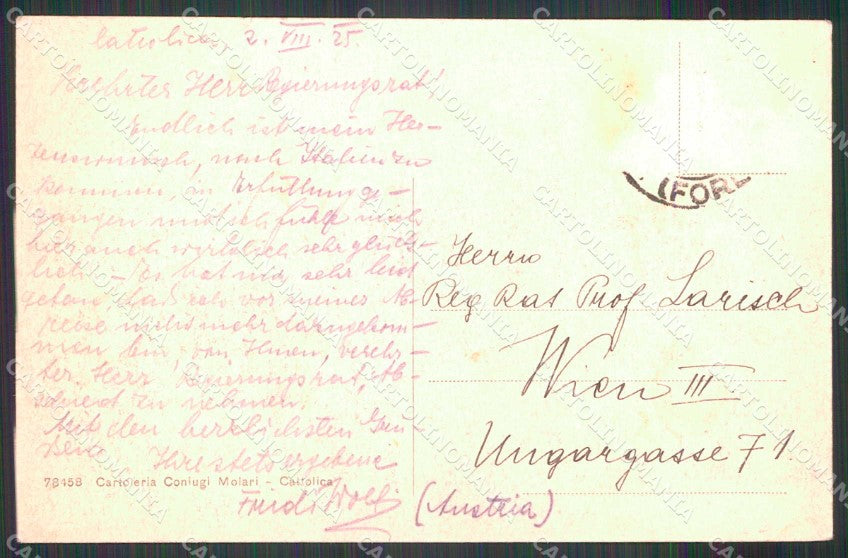 Cattolica 2. VIII. 25.
Verehrter Herr Regierungsrat!
Endlich ist mein Her-
zenswunsch, nach Italien zu
kommen, in Erfüllung ge-
gangen und ich fühle mich
hier auch wirklich sehr glück-
lich. – Es hat mir sehr leid
getan, daß ich vor meiner Ab-
reise nicht mehr dazugekom-
men bin, von Ihnen, verehr-
ter Herr Regierungsrat, Ab-
schied zu nehmen.
Mit den herzlichsten
Ihre stets ergebene
Friedl Wolf
78458 Cartoleria Coniugi Molari - Cattolica
(FOR
Herrn
Reg Rat Prof Larisch
Wien III
Ungargasse 71.
(Austria)
CARTOLINOMANIA